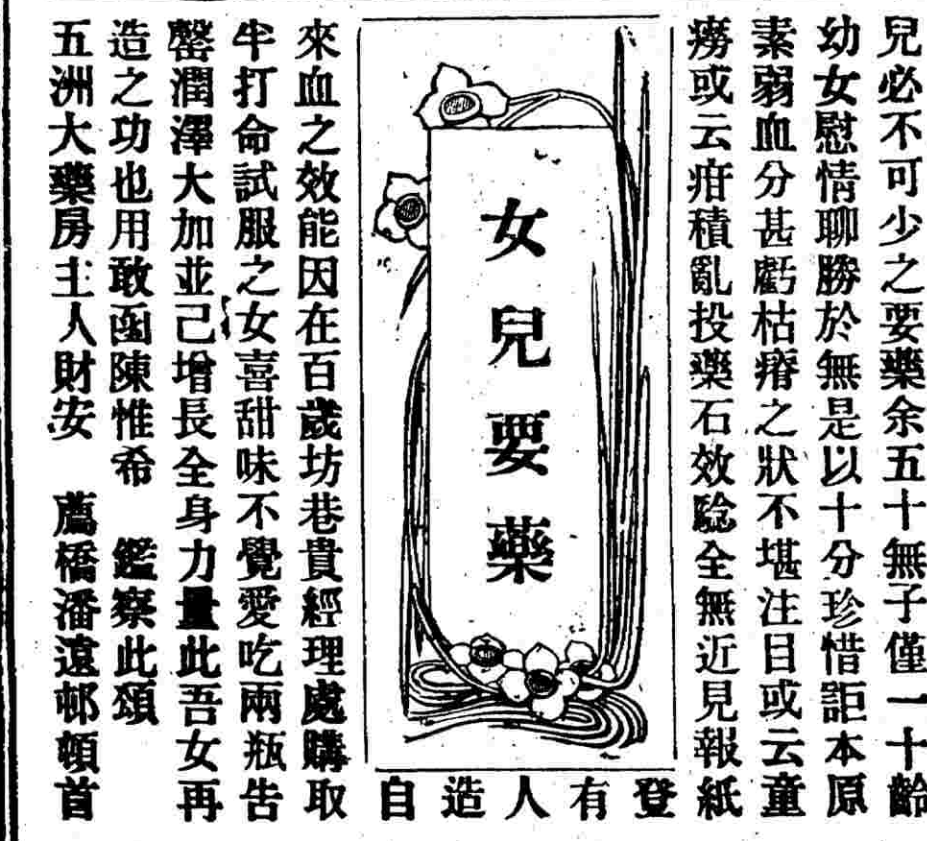 兒必不可少之要藥余五十無子僅一十齡
幼女慰情聊勝於無是以十分珍惜詎本原
素弱血分甚虧枯瘠之狀不堪注目或云童
癆或云疳積亂投藥石效騐全無近見報紙
登有人造自
女兒要藥
來血之效能因在百歲坊巷貴經理處購取
半打命試服之女喜甜味不覺愛吃兩瓶告
罄潤澤大加並己增長全身力量此吾女再
造之功也用敢函陳惟希 鑑察此頌
五洲大藥房主人財安 薦橋潘遠邨頓首